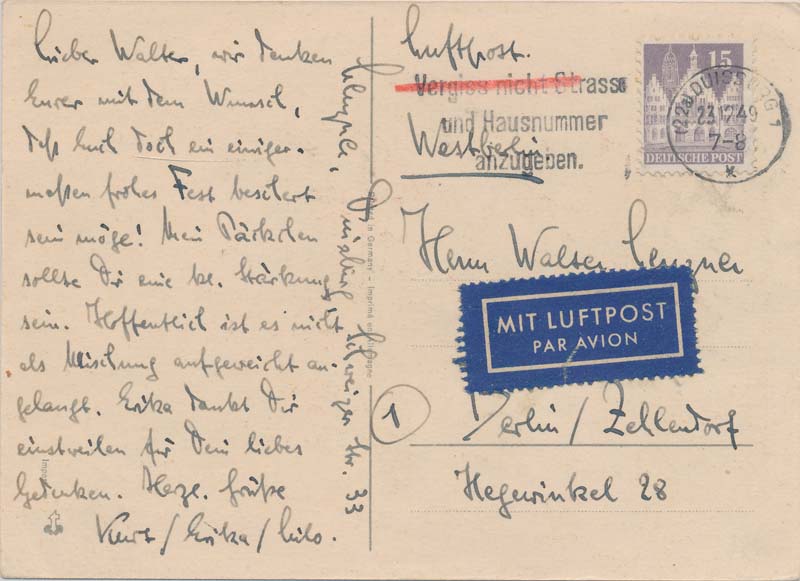 Lieber Walter, wir denken
Eurer mit dem Wunsch,
daß Euch doch ein einiger-
maßen frohes Fest beschert
sein möge! Mein Päckchen
sollte Dir eine kl. Stärkung
sein. Hoffentlich ist es nicht
als Mischung aufgeweicht an-
gelangt. Erika dankt Dir
einstweilen für Dein liebes
Gedenken. Herzl. Grüße
Kurt / Erika /
Duisburg, Str. 33
Printed in Germany – Imprimé en Allemagne
Luftpost.
Vergiss nicht Strasse
und Hausnummer
anzugeben.
Westberlin
15
DEUTSCHE POST
(22a) DUISBURG 1
23.12.49
7-8
Herrn Walter
MIT LUFTPOST
PAR AVION
1
Berlin / Zehlendorf
Hegewinkel 28